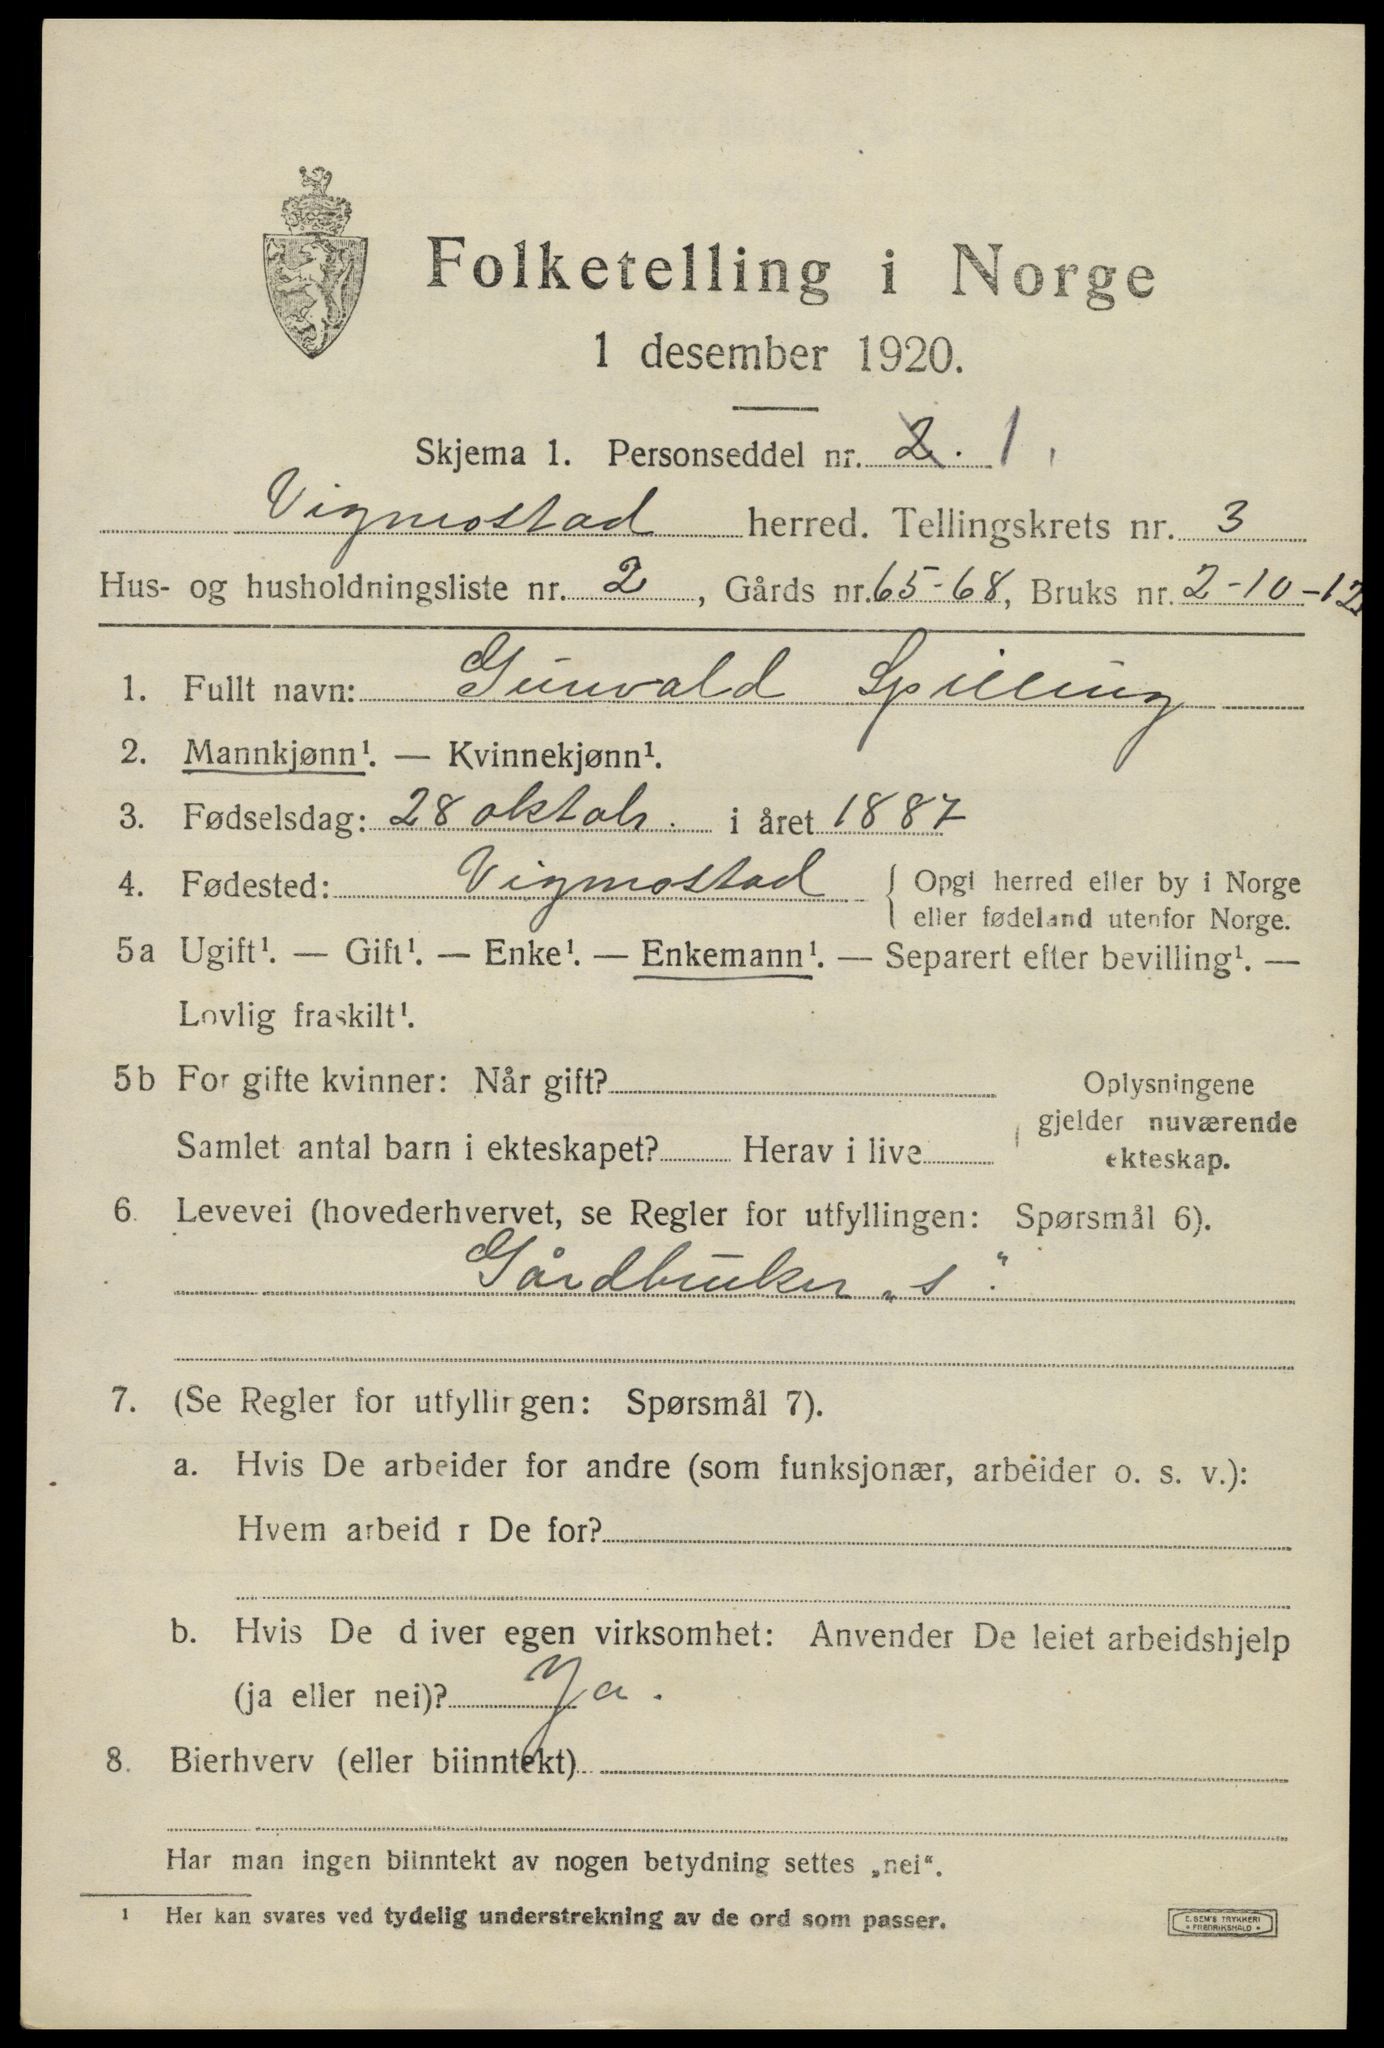 Folketelling i Norge
1 desember 1920.
Skjema 1. Personseddel nr. 2. 1.
Vigmostad herred. Tellingskrets nr. 3
Hus- og husholdningsliste nr. 2, Gårds nr. 65-68, Bruks nr. 2-10-12
1. Fullt navn: Gunvald Spilling
2. Mannkjønn¹. — Kvinnekjønn¹.
3. Fødselsdag: 28 oktob. i året 1887
4. Fødested: Vigmostad { Opgi herred eller by i Norge
eller fødeland utenfor Norge.
5a Ugift¹. — Gift¹. — Enke¹. — Enkemann¹. — Separert efter bevilling¹. —
Lovlig fraskilt¹.
5b For gifte kvinner: Når gift? Oplysningene
gjelder nuværende
Samlet antal barn i ekteskapet? Herav i live ekteskap.
6. Levevei (hovederhvervet, se Regler for utfyllingen: Spørsmål 6).
Gårdbruker „s“.
7. (Se Regler for utfyllingen: Spørsmål 7).
a. Hvis De arbeider for andre (som funksjonær, arbeider o. s. v.):
Hvem arbeid r De for?
b. Hvis De d iver egen virksomhet: Anvender De leiet arbeidshjelp
(ja eller nei)? Ja.
8. Bierhverv (eller biinntekt)
Har man ingen biinntekt av nogen betydning settes „nei“.
¹ Her kan svares ved tydelig understrekning av de ord som passer.
E. SEM'S TRYKKERI
FREDRIKSHALD